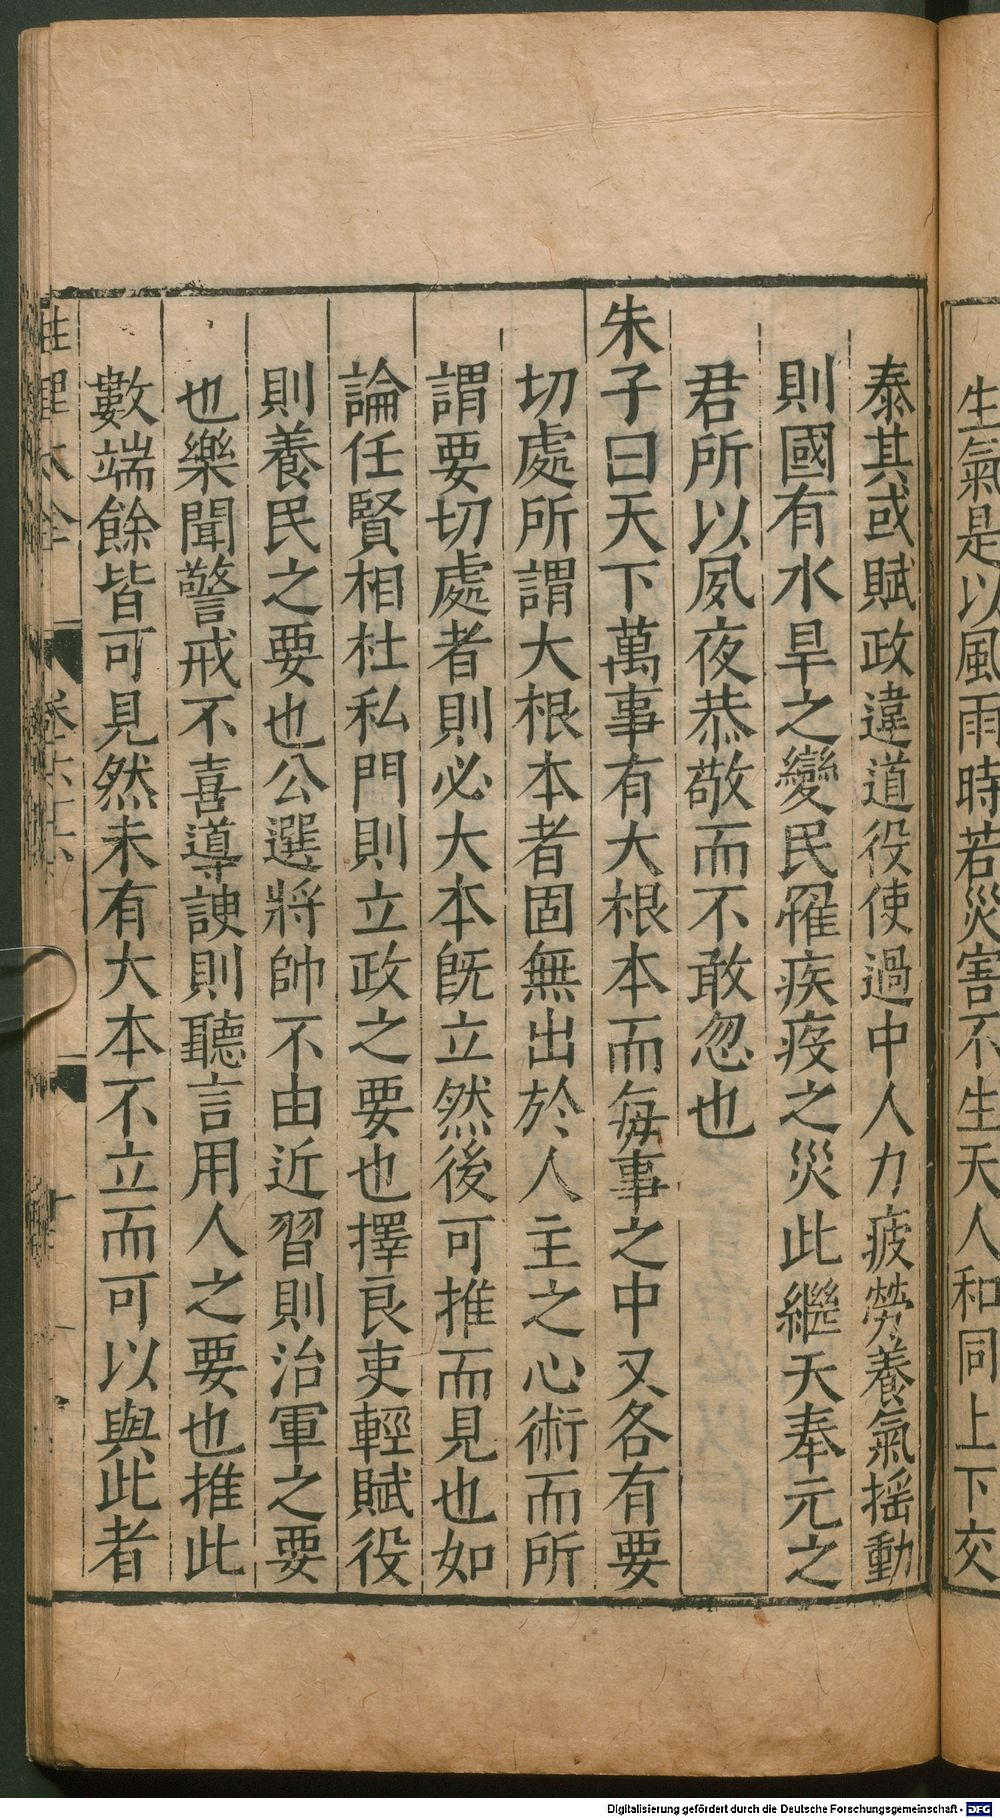 生氣是以風雨時若災害不生天人和同上下交
泰其或賦政違道役使過中人力疲勞養氣揺動
則國有水旱之變民罹疾疫之災此繼天奉元之
君所以夙夜恭敬而不敢忽也
朱子曰天下萬事有大根本而每事之中又各有要
切處所謂大根本者固無出於人主之心術而所
謂要切處者則必大本旣立然後可推而見也如
論任賢相杜私門則立政之要也擇良吏輕賦役
則養民之要也公選將帥不由近習則治軍之要
也樂聞警戒不喜導諛則聽言用人之要也推此
數端餘皆可見然未有大本不立而可以與此者
性理大全 卷六十六
Digitalisierung gefördert durch die Deutsche Forschungsgemeinschaft - DFG